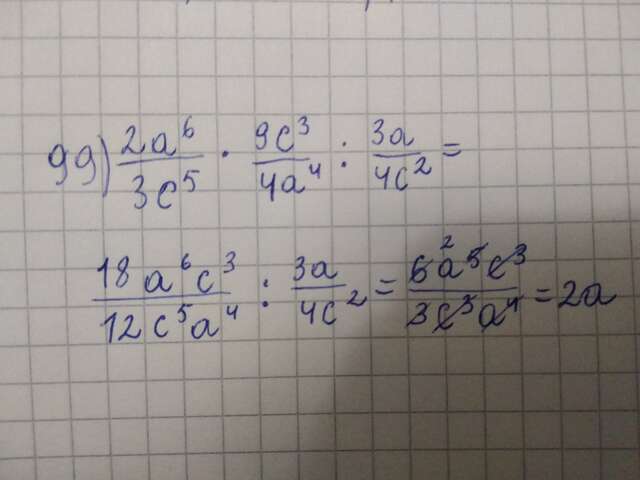 99) 2a⁶/3c⁵ · 9c³/4a⁴ : 3a/4c² =
18a⁶c³/12c⁵a⁴ : 3a/4c² = 6²a⁵c³/3c³a⁴ = 2a